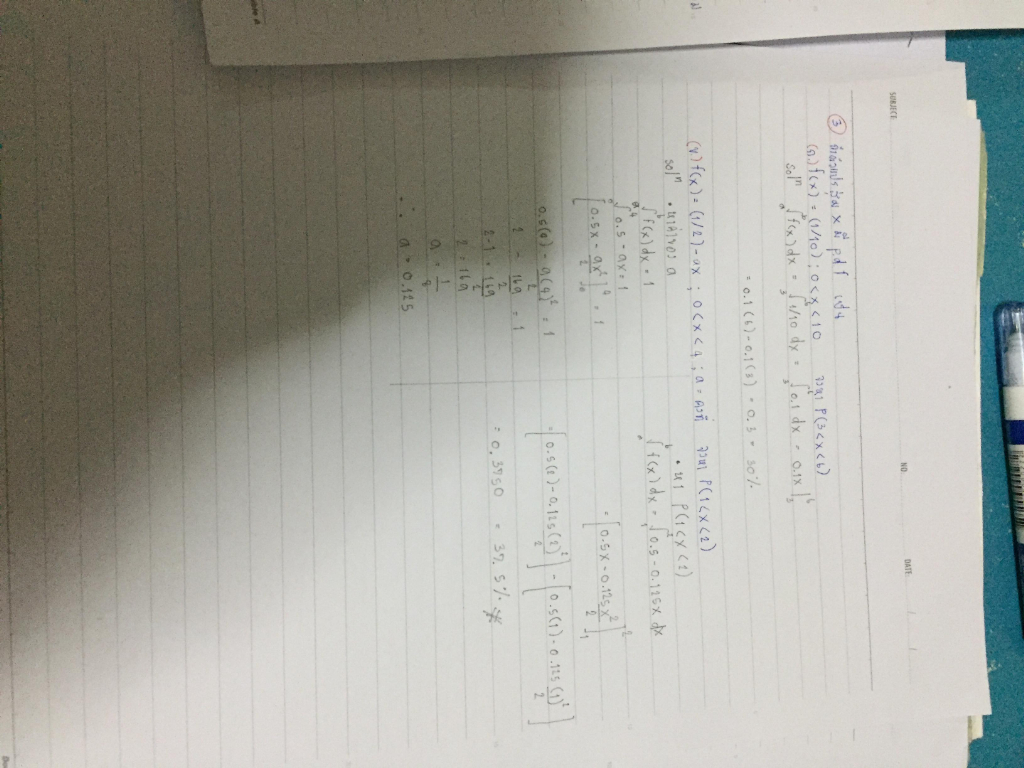 SUBJECT NO. DATE / /
③ ถ้าตัวแปรสุ่ม X มี pdf เป็น
(ก.) f(x) = (1/10) ; 0 < x < 10 จงหา P(3<x<6)
solⁿ ₐ∫ᵇ f(x) dx = ₃∫⁶ 1/10 dx = ₃∫⁶ 0.1 dx = 0.1x |₃⁶
= 0.1(6) - 0.1(3) = 0.3 = 30%
(ข) f(x) = (1/2) - ax ; 0 < x < 4 ; a = คงที่ จงหา P(1<x<2)
solⁿ • หาค่าของ a
ₐ∫ᵇ f(x) dx = 1
₀∫⁴ 0.5 - ax = 1
[0.5x - ax²/2]₀⁴ = 1
0.5(4) - a(4)²/2 = 1
2 - 16a/2 = 1
2-1 = 16a/2
2 = 16a
a = 1/8
∴ a = 0.125
• หา P(1<x<2)
ₐ∫ᵇ f(x) dx = ₁∫² 0.5 - 0.125x dx
= [0.5x - 0.125x²/2]₁²
= [0.5(2) - 0.125(2)²/2] - [0.5(1) - 0.125(1)²/2]
= 0.3750 = 37.5%